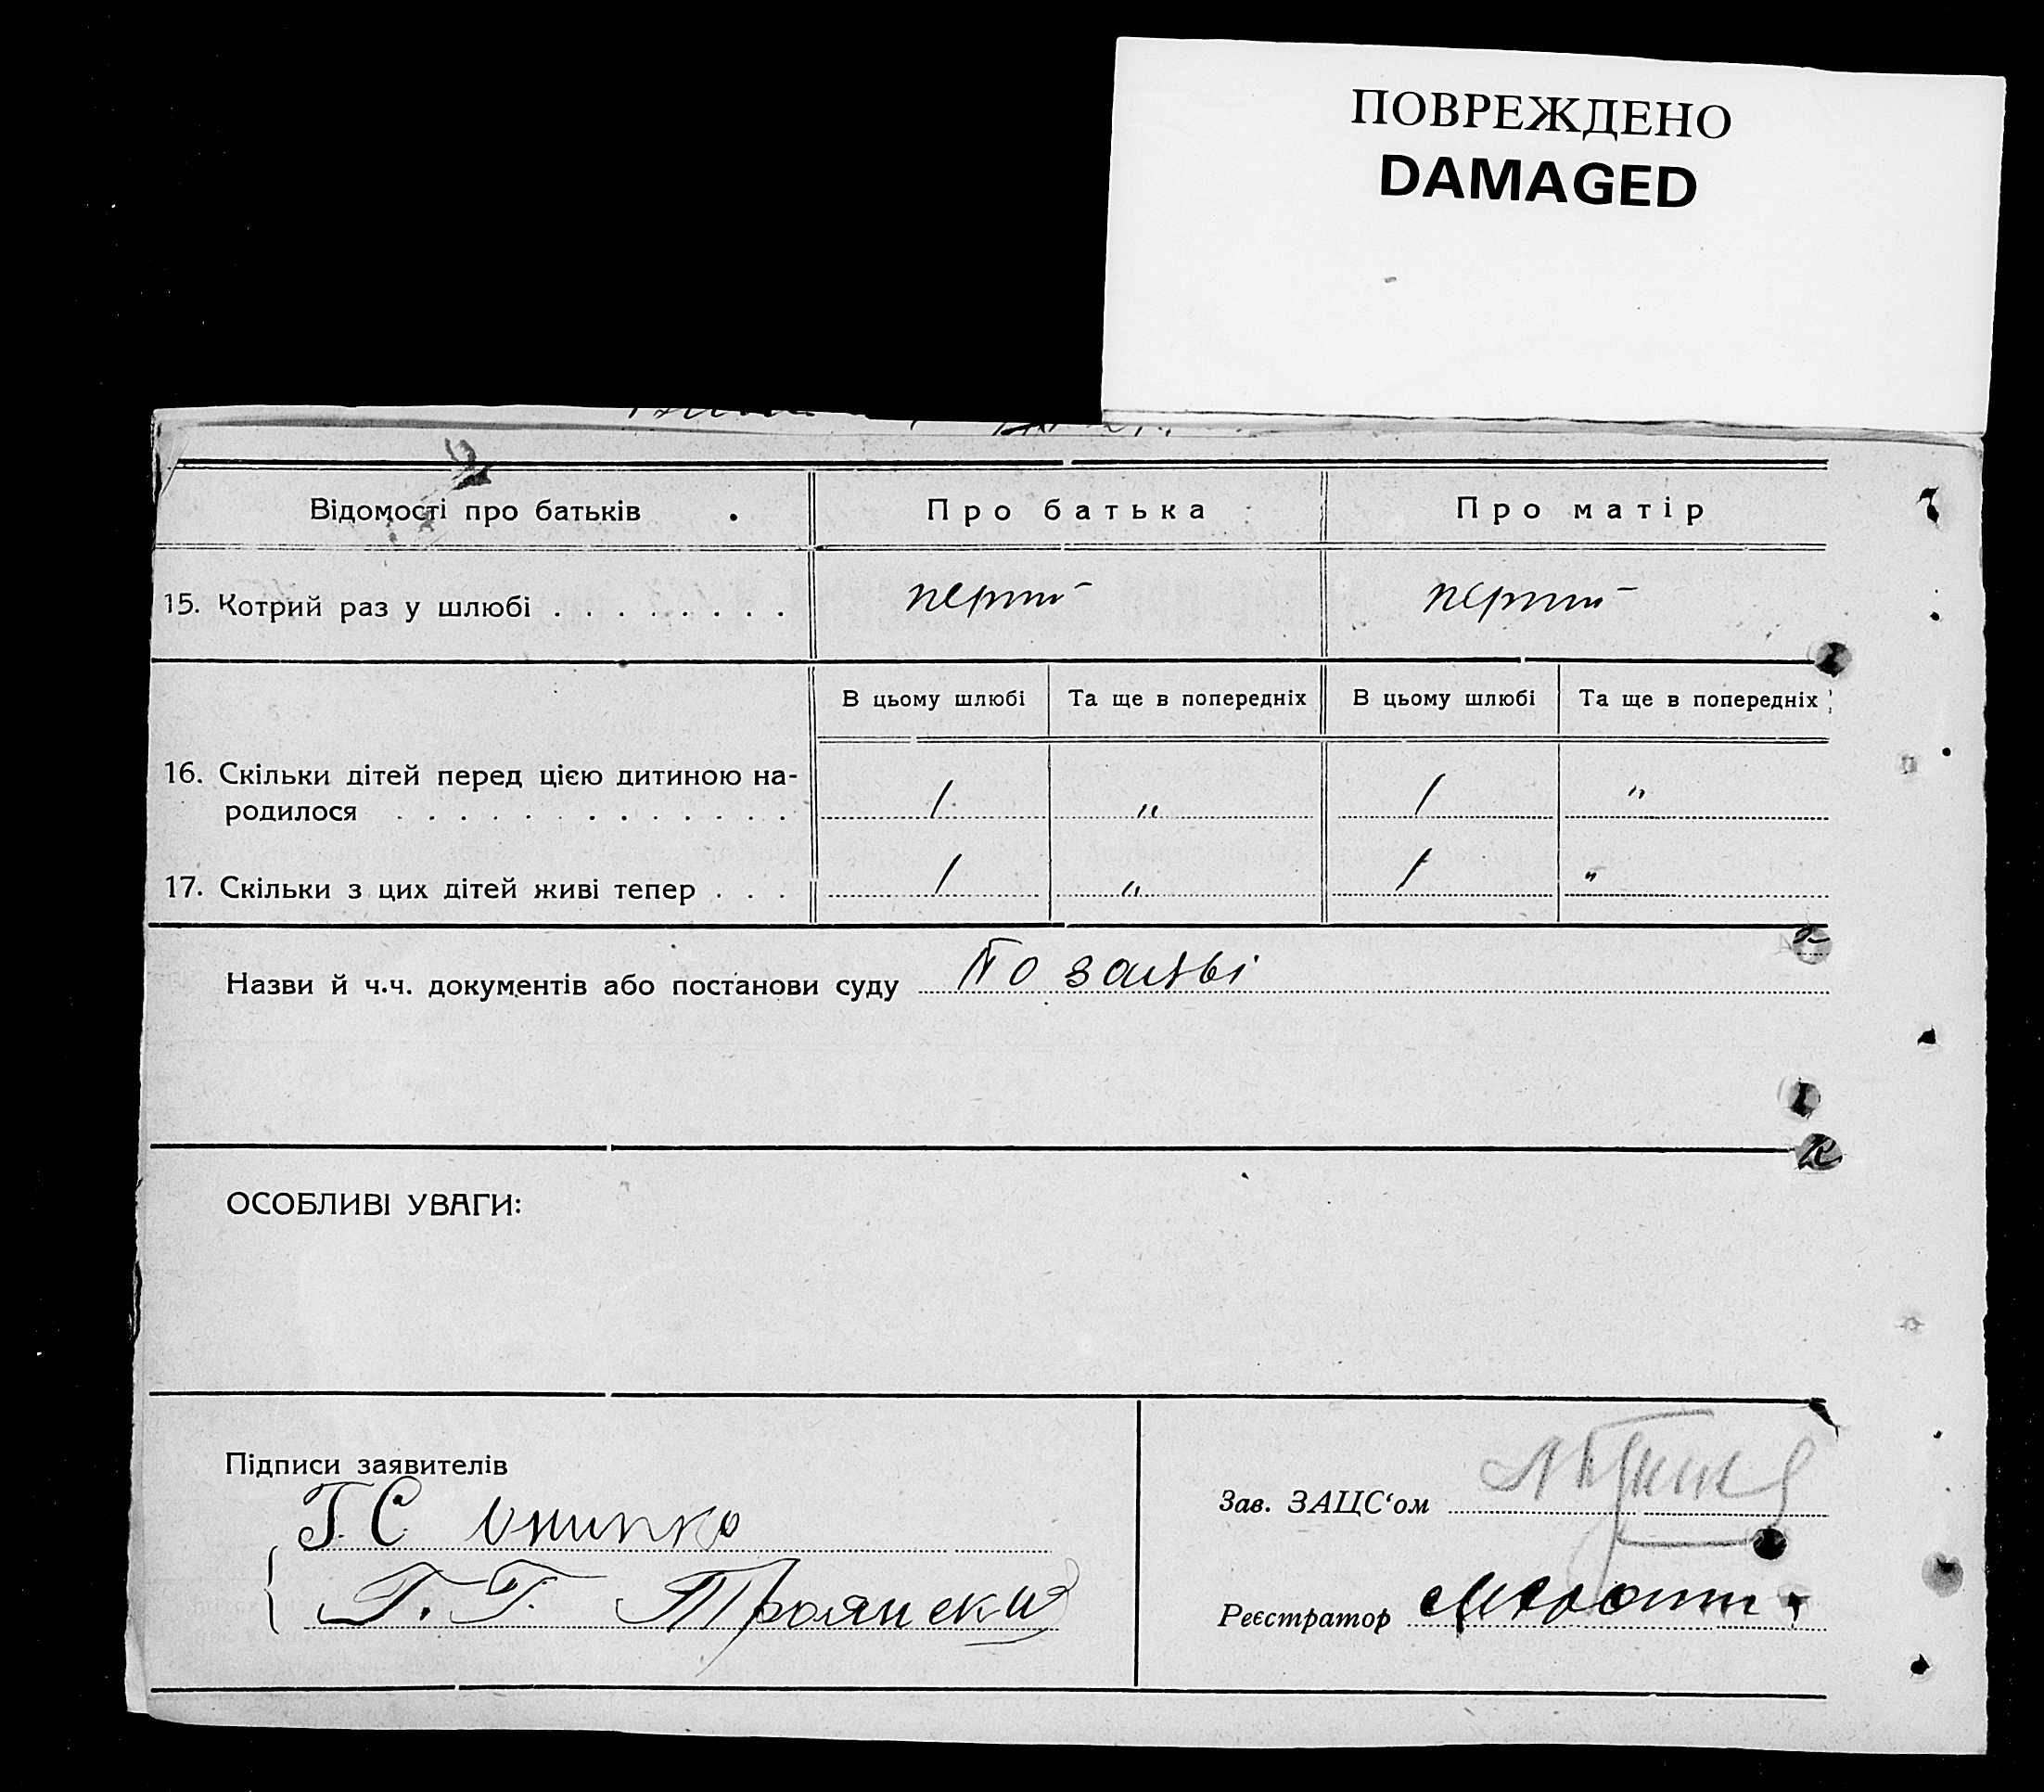 ПОВРЕЖДЕНО
DAMAGED
Відомості про батьків
Про батька
Про матір
15. Котрий раз у шлюбі
перший
перший
В цьому шлюбі
Та ще в попередніх
В цьому шлюбі
Та ще в попередніх
16. Скільки дітей перед цією дитиною на-
родилося
1
"
1
"
17. Скільки з цих дітей живі тепер
1
"
1
"
Назви й ч.ч. документів або постанови суду По заяві
ОСОБЛИВІ УВАГИ:
Підписи заявителів
Г. С
Г. Г. Троянский
Зав. ЗАЦС‘ом
Реєстратор